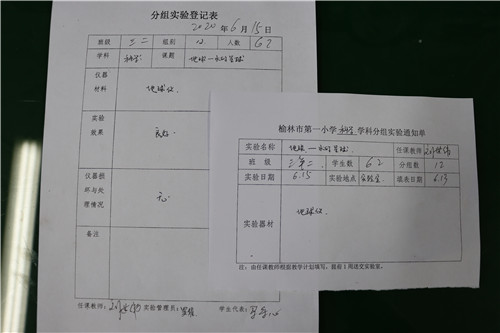 分组实验登记表
2020年6月15日
班级 三二 组别 12 人数 62
学科 科学 课题 地球—水的星球
仪器
材料
地球仪
实验
效果
良好
仪器损
坏与处
理情况
无
备注
任课教师: 实验管理员: 学生代表:
榆林市第一小学科学学科分组实验通知单
实验名称 地球—水的星球 任课教师
班 级 三年二 学生数 62 分组数 12
实验日期 6.15 实验地点 实验室 填表日期 6.13
实验器材
地球仪
注:由任课教师根据教学计划填写,提前1周送交实验室。